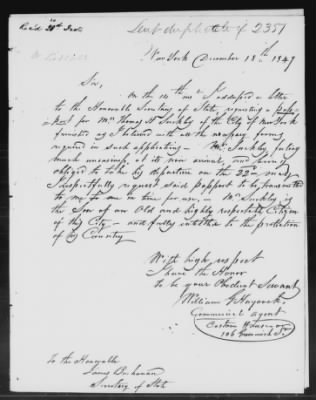 Rec'd 20th Dec
Sent duplicate of 2351
New York December 18th 1847
Sir,
On the 14th ins I addressed a letter
to the Honorable Secretary of State, requesting a Pass
port for Mr Thomas H Suckley of the City of New York
furnished as I believed with all the necessary forms
required in such applications - Mr Suckley feeling
much uneasiness, at its non arrival, and being
obliged to take his departure on the 22nd
I respectfully request said passport to be transmitted
to me in time for use, - Mr Suckley is
the Son of an Old and highly respectable Citizen
of this City - and fully entitled to the protection
of his Country
With high respect
I have the Honor
to be your Obedient Servant
William
Commercial agent
Custom House
To the Honorable
James Buchanan
Secretary of State